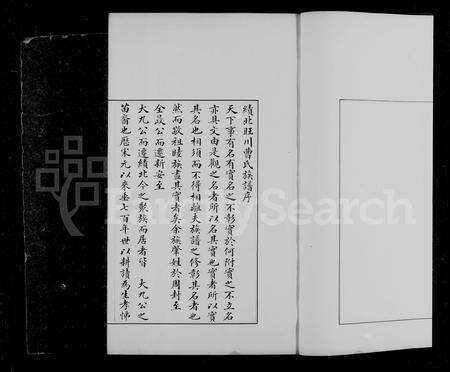 績北旺川曹氏族譜序
天下事有名有實名之不彰實於何附實之不立名
亦具文由是觀之名者所以名其實也實者所以實
其名也相須而不得相離夫族譜之修彰其名者也
然而敬祖睦族盡其實者矣余族肇姓於周封至
全晸公而遷新安至
大九公而遷績北今之聚族而居者皆 大九公之
苗裔也歷宋元以來垂七百年世以耕讀為生孝悌
FamilySearch